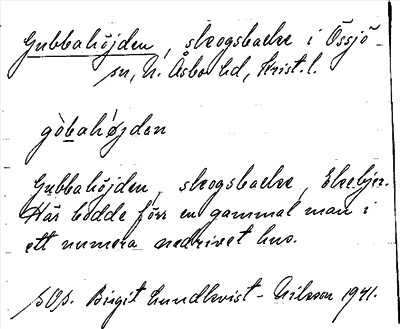 Gubbahöjden, skogsbacke i Össjö
sn, N. Åsbo hd, Krist. l.
gòbahö́jdan
Gubbahöjden, skogsbacke, Ekebjer.
Här bodde förr en gammal man i
ett numera nedrivet hus.
Birgit Lundkvist-Nilsson 1941.